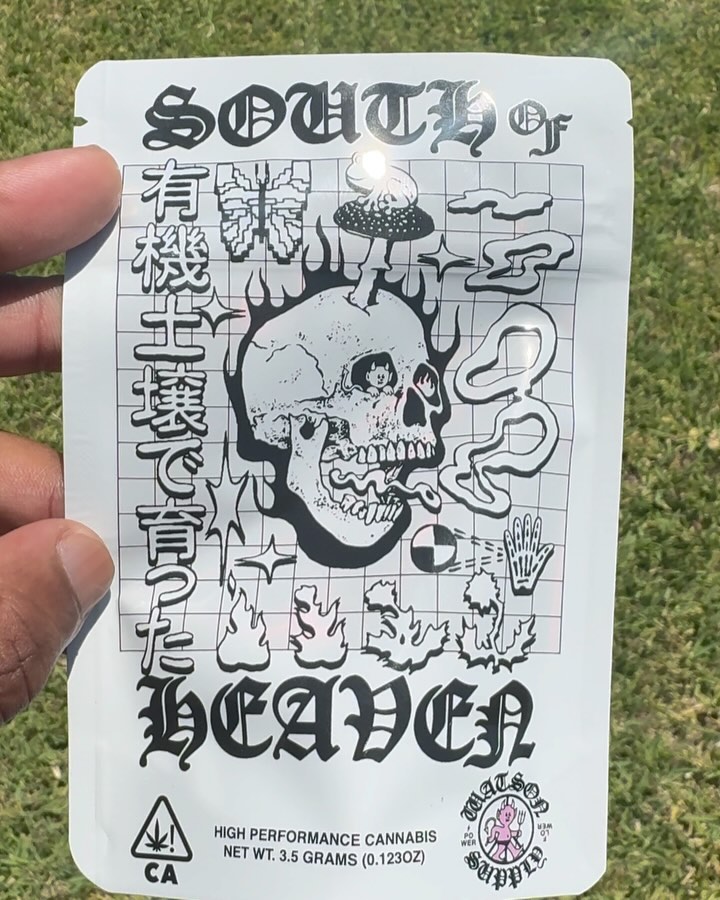 SOUTH OF
有機土壌で育った
HEAVEN
CA
HIGH PERFORMANCE CANNABIS
NET WT. 3.5 GRAMS (0.123OZ)
WATSON
PO
WER
FLO
WER
SUPPLY